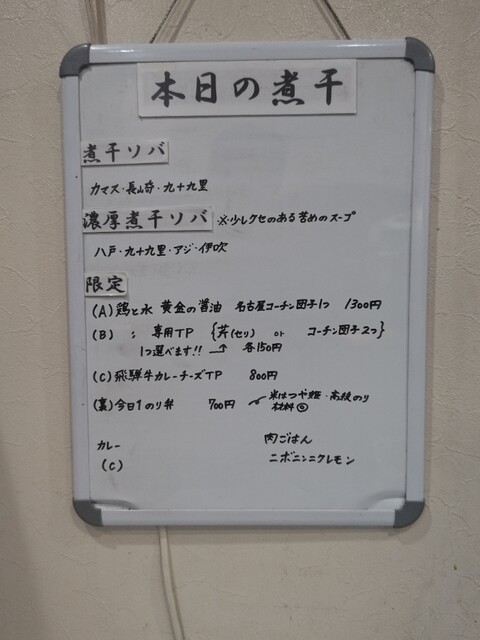 本日の煮干
煮干ソバ
カマス・長崎・九十九里
濃厚煮干ソバ ※少しクセのある苦めのスープ
八戸・九十九里・アジ・伊吹
限定
(A) 鶏と水 黄金の醤油 名古屋コーチン団子1つ 1300円
(B) 〃 専用TP {芹(セリ) or コーチン団子2つ}
1つ選べます!! → 各150円
(C) 飛騨牛カレーチーズTP 800円
(裏) 今日1のり弁 700円 米はつや姫・高級のり
材料◎
カレー 肉ごはん
(C) ニボニンニクレモン